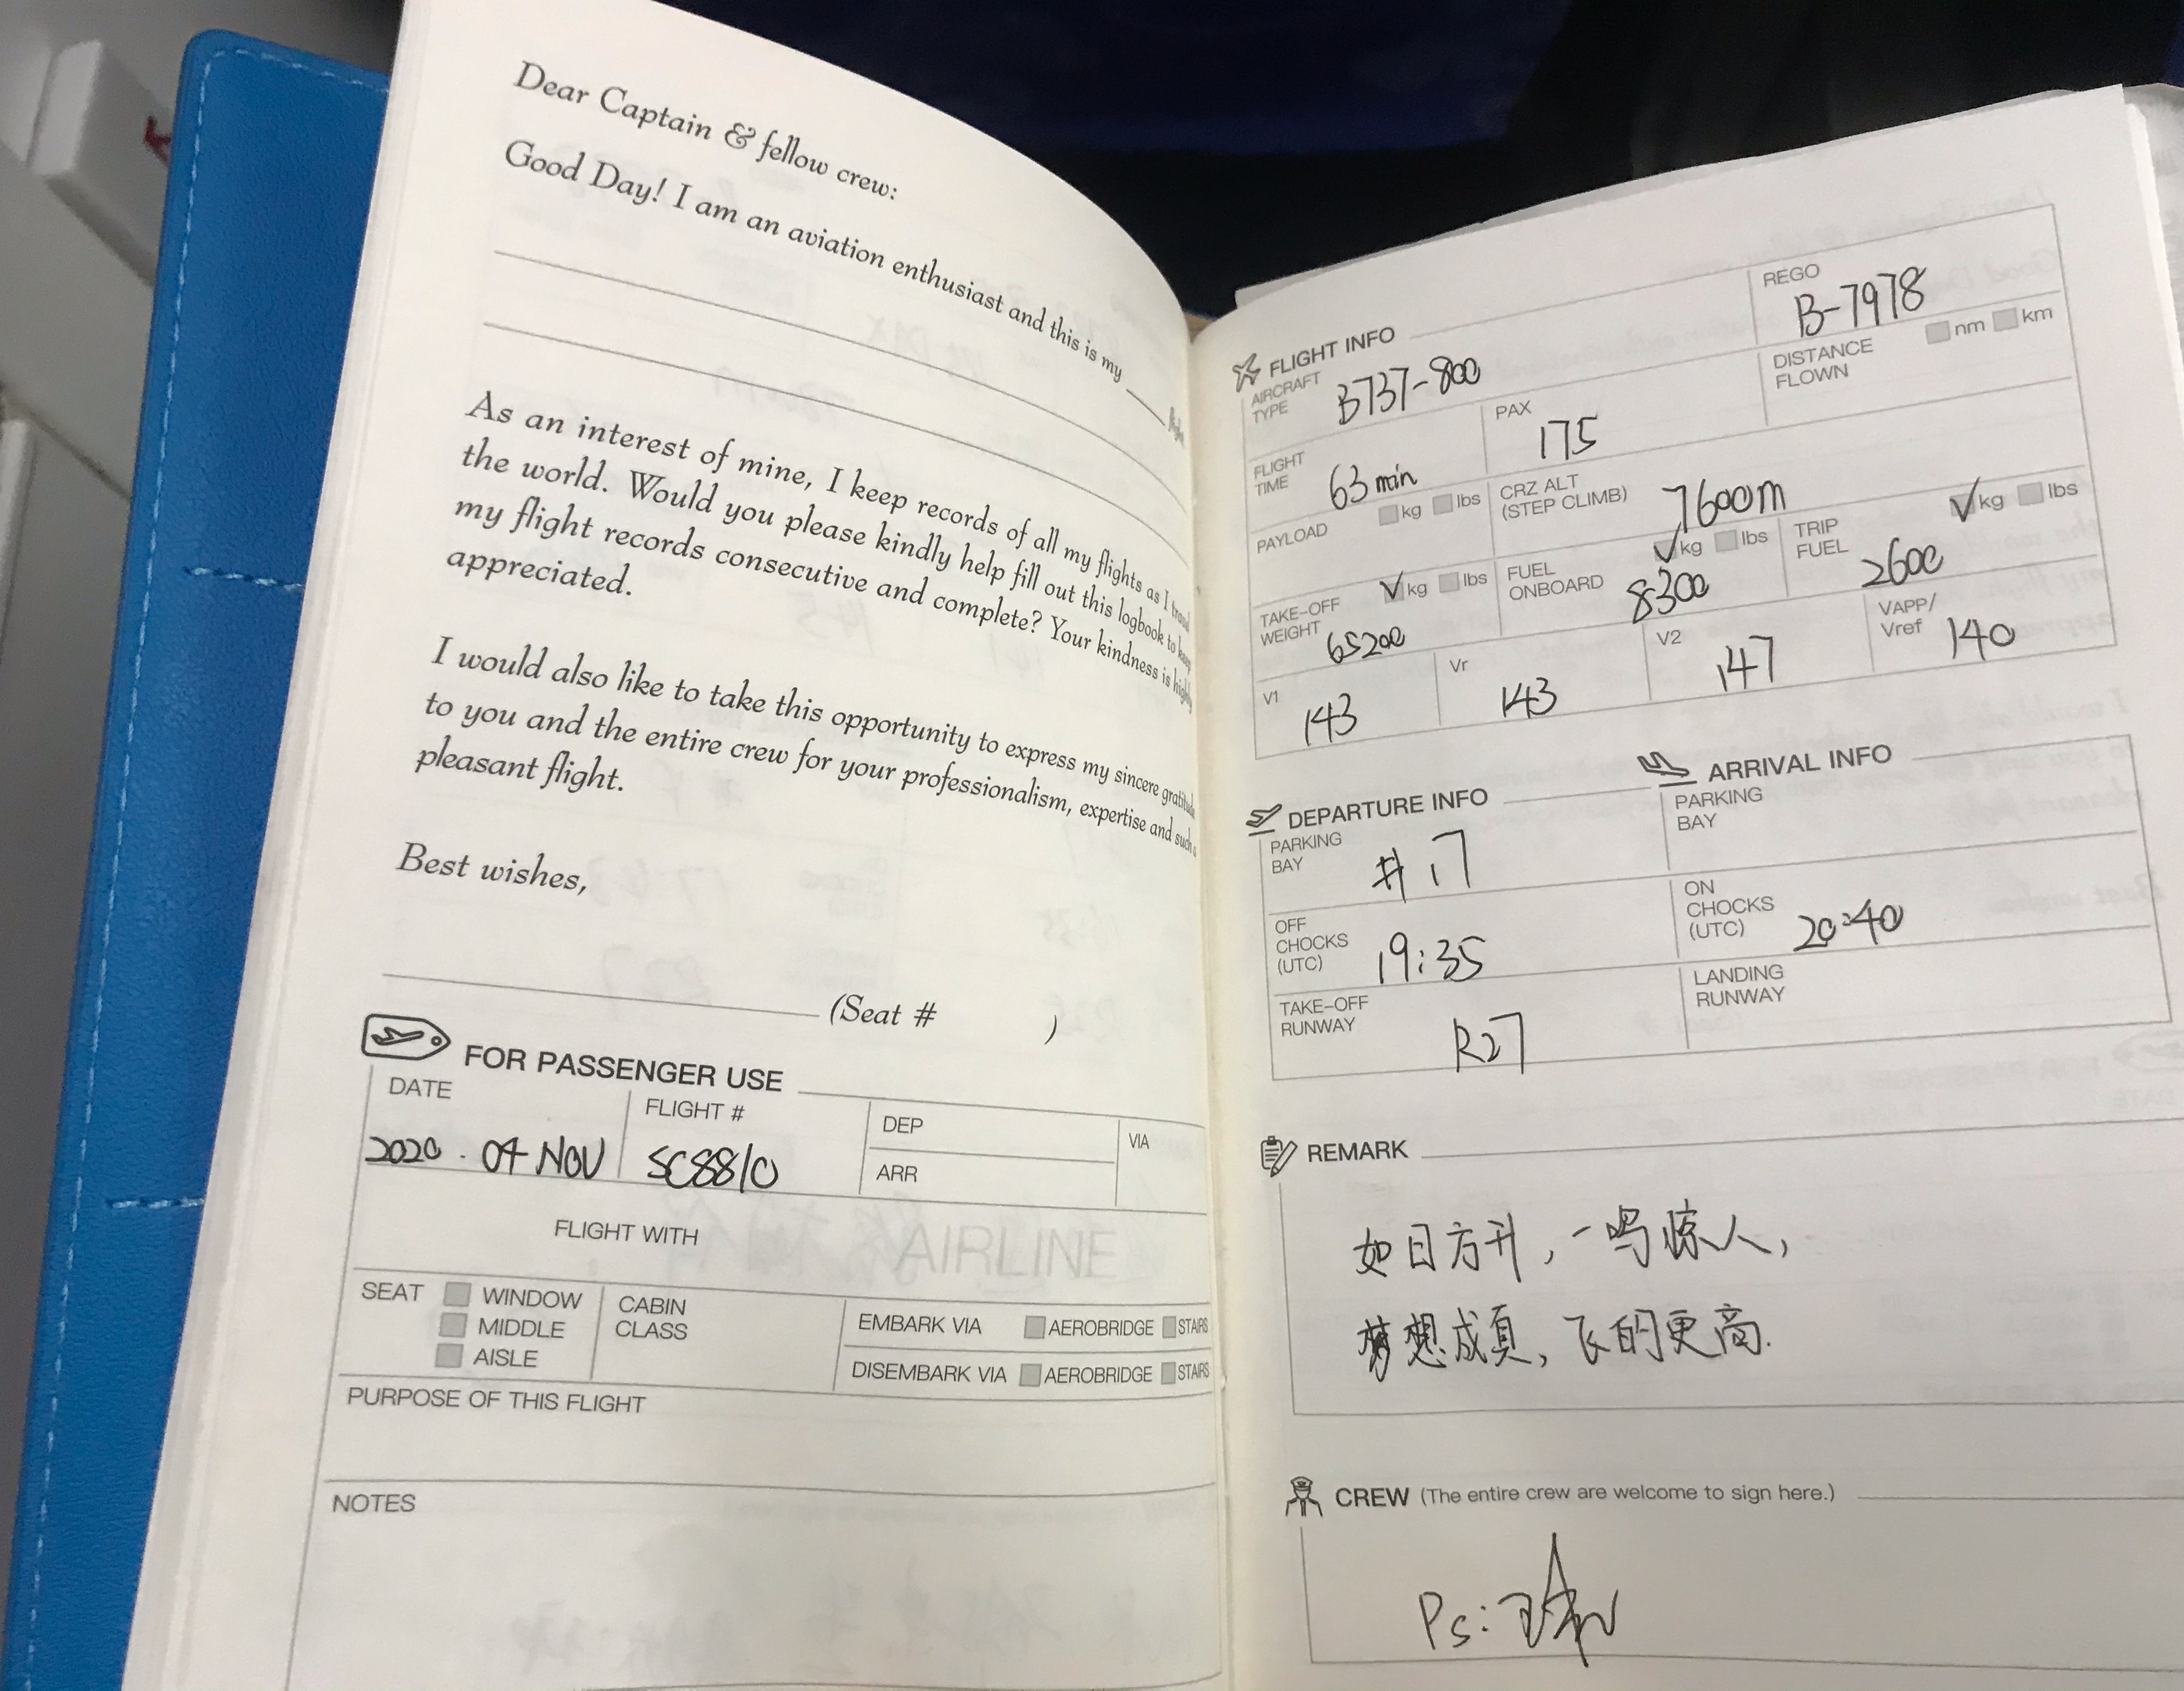 Dear Captain & fellow crew:
Good Day! I am an aviation enthusiast and this is my ____ flight
As an interest of mine, I keep records of all my flights as I travel
the world. Would you please kindly help fill out this logbook to keep
my flight records consecutive and complete? Your kindness is highly
appreciated.
I would also like to take this opportunity to express my sincere gratitude
to you and the entire crew for your professionalism, expertise and such a
pleasant flight.
Best wishes,
(Seat # )
FOR PASSENGER USE
DATE
2020. 04 NOV
FLIGHT #
SC8810
DEP
ARR
VIA
FLIGHT WITH
AIRLINE
SEAT
WINDOW
MIDDLE
AISLE
CABIN
CLASS
EMBARK VIA AEROBRIDGE STAIRS
DISEMBARK VIA AEROBRIDGE STAIRS
PURPOSE OF THIS FLIGHT
NOTES
FLIGHT INFO
AIRCRAFT
TYPE
B737-800
REGO
B-7978
FLIGHT
TIME
63 min
PAX
175
DISTANCE
FLOWN
nm km
PAYLOAD
kg lbs
CRZ ALT
(STEP CLIMB)
7600m
TAKE-OFF
WEIGHT
kg lbs
65200
FUEL
ONBOARD
kg lbs
8300
TRIP
FUEL
kg lbs
2600
V1
143
Vr
143
V2
147
VAPP/
Vref
140
DEPARTURE INFO
PARKING
BAY
#17
OFF
CHOCKS
(UTC)
19:35
TAKE-OFF
RUNWAY
R27
ARRIVAL INFO
PARKING
BAY
ON
CHOCKS
(UTC)
20:40
LANDING
RUNWAY
REMARK
如日方升，一鸣惊人，
梦想成真，飞的更高.
CREW (The entire crew are welcome to sign here.)
Ps: